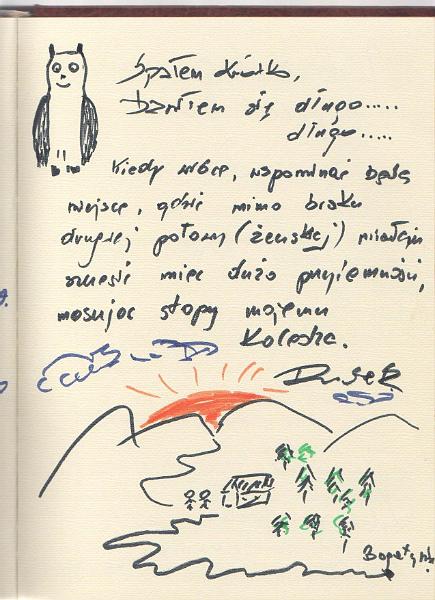 Spałem krótko,
Bawiłem się długo.....
długo.....
Kiedy wrócę, wspominać będę
miejsce, gdzie mimo braku
drugiej połowy (żeńskiej) miałem
szczęście mieć dużo przyjemności,
masując stopy mojemu
Koledze.